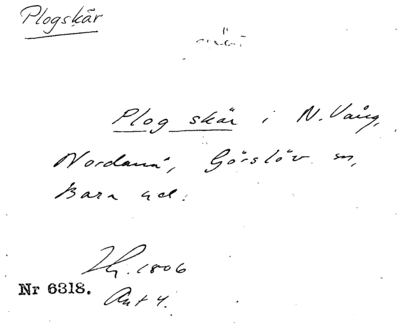 Plogskär
Plog skär i N. Vång,
Nordanå, Görslöv sn,
Bara hd.
1806
Nr 6318. Akt 4.